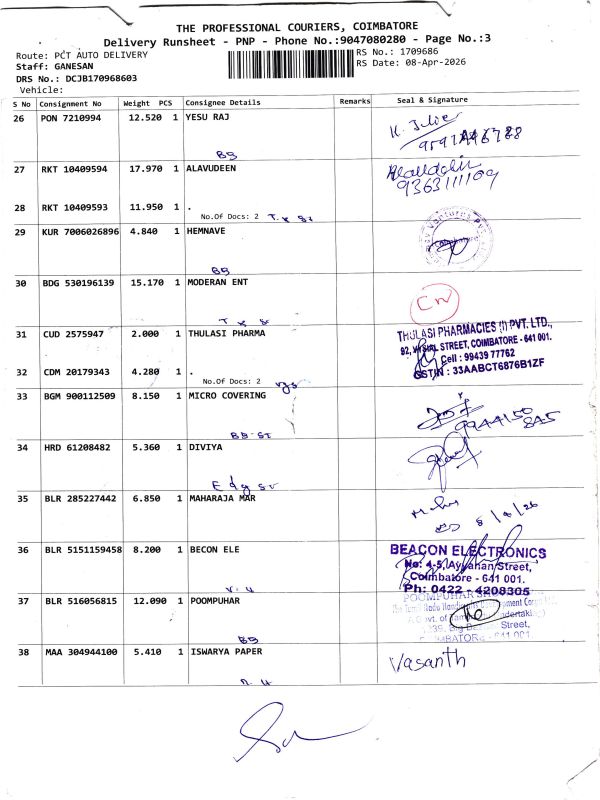 THE PROFESSIONAL COURIERS, COIMBATORE
Delivery Runsheet - PNP - Phone No.:9047080280 - Page No.:3
Route: PCT AUTO DELIVERY
RS No.: 1709686
Staff: GANESAN
RS Date: 08-Apr-2026
DRS No.: DCJB170968603
Vehicle:
S No Consignment No Weight PCS Consignee Details Remarks Seal & Signature
26 PON 7210994 12.520 1 YESU RAJ
BB
27 RKT 10409594 17.970 1 ALAVUDEEN
Alauddin
9363111109
28 RKT 10409593 11.950 1 .
No.Of Docs: 2
29 KUR 7006026896 4.840 1 HEMNAVE
BB
30 BDG 530196139 15.170 1 MODERAN ENT
31 CUD 2575947 2.000 1 THULASI PHARMA
THULASI PHARMACIES (I) PVT. LTD.,
STREET, COIMBATORE - 641 001.
Cell : 99439 77762
GSTIN : 33AABCT6876B1ZF
32 CDM 20179343 4.280 1 .
No.Of Docs: 2
33 BGM 900112509 8.150 1 MICRO COVERING
9944150
845
BB St
34 HRD 61208482 5.360 1 DIVIYA
35 BLR 285227442 6.850 1 MAHARAJA MAR
8/4/26
36 BLR 5151159458 8.200 1 BECON ELE
BEACON ELECTRONICS
No: 4-5, Ayyahan Street,
Coimbatore - 641 001.
Ph: 0422 - 4208305
37 BLR 516056815 12.090 1 POOMPUHAR
POOMPUHAR
BB
38 MAA 304944100 5.410 1 ISWARYA PAPER
Vasanth